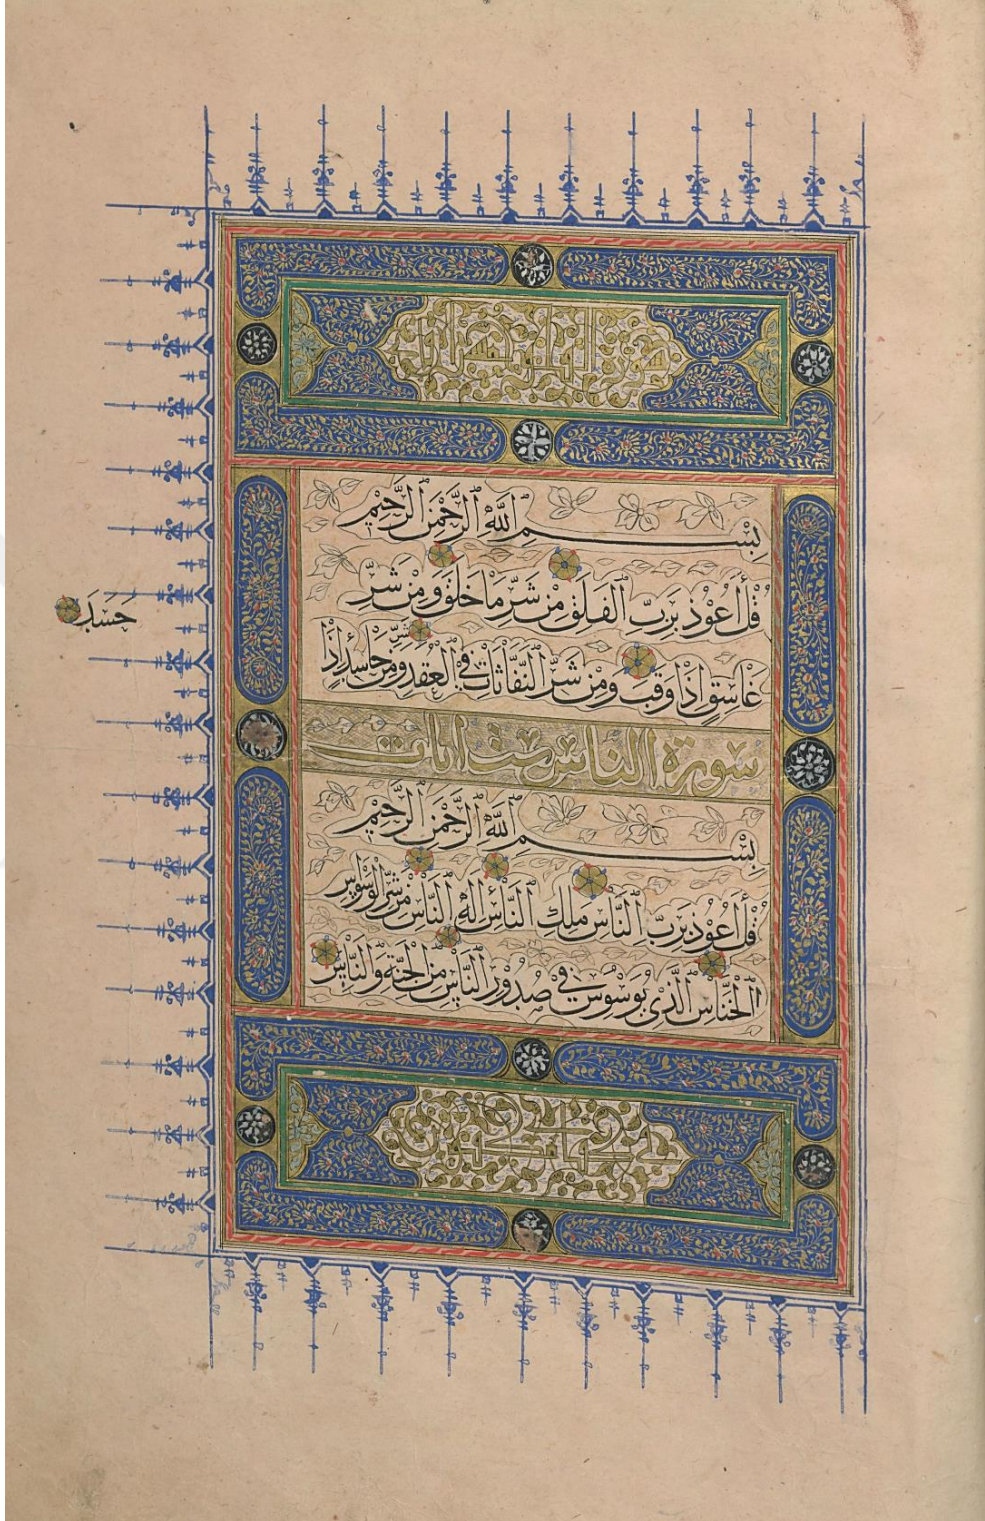 بِسْمِ ٱللَّهِ ٱلرَّحْمٰنِ ٱلرَّحِيْمِ
قُلْ أَعُوْذُ بِرَبِّ ٱلْفَلَقِ مِنْ شَرِّ مَا خَلَقَ وَمِنْ شَرِّ
غَاسِقٍ اِذَا وَقَبَ وَمِنْ شَرِّ ٱلنَّفَّاثَاتِ فِي ٱلْعُقَدِ وَمِنْ شَرِّ حَاسِدٍ اِذَا
حَسَدَ
سورة الناس ست ايات
بِسْمِ ٱللَّهِ ٱلرَّحْمٰنِ ٱلرَّحِيْمِ
قُلْ أَعُوْذُ بِرَبِّ ٱلنَّاسِ مَلِكِ ٱلنَّاسِ اِلٰهِ ٱلنَّاسِ مِنْ شَرِّ ٱلْوَسْوَاسِ
ٱلْخَنَّاسِ ٱلَّذِي يُوَسْوِسُ فِي صُدُوْرِ ٱلنَّاسِ مِنَ ٱلْجِنَّةِ وَٱلنَّاسِ